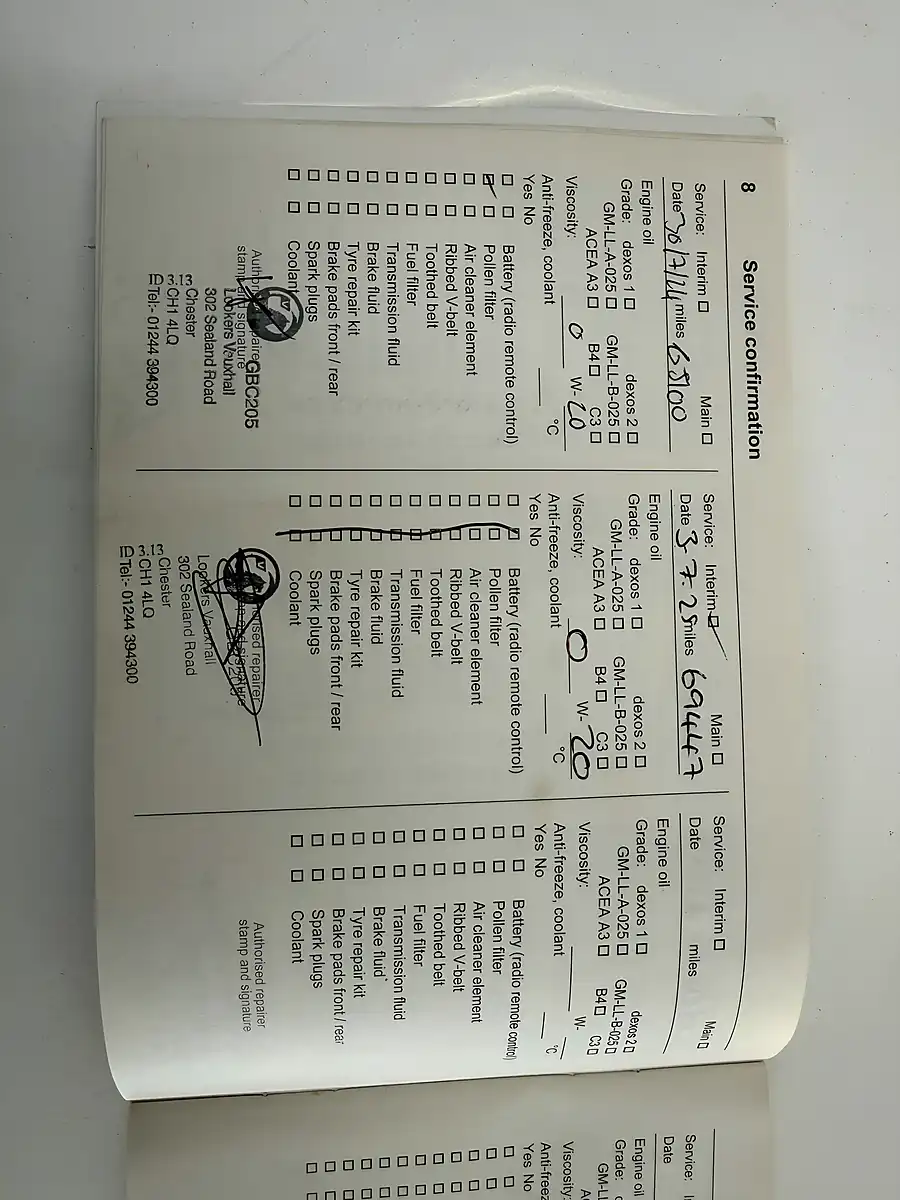 8
Service confirmation
Service: Interim ☐ Main ☐
Date 30/7/24 miles 65100
Engine oil
Grade: dexos 1 ☐ dexos 2 ☐
GM-LL-A-025 ☐ GM-LL-B-025 ☐
ACEA A3 ☐ B4 ☐ C3 ☐
Viscosity: 0 W- 20
Anti-freeze, coolant °C
Yes No
☐ ☐ Battery (radio remote control)
☑ ☐ Pollen filter
☐ ☐ Air cleaner element
☐ ☐ Ribbed V-belt
☐ ☐ Toothed belt
☐ ☐ Fuel filter
☐ ☐ Transmission fluid
☐ ☐ Brake fluid
☐ ☐ Tyre repair kit
☐ ☐ Brake pads front / rear
☐ ☐ Spark plugs
☐ ☐ Coolant
Authorised repairer GBC205
stamp and signature
Lookers Vauxhall
302 Sealand Road
Chester
CH1 4LQ
ID 3.13 Tel:- 01244 394300
Service: Interim ☑ Main ☐
Date 3.7.25 miles 69447
Engine oil
Grade: dexos 1 ☐ dexos 2 ☐
GM-LL-A-025 ☐ GM-LL-B-025 ☐
ACEA A3 ☐ B4 ☐ C3 ☐
Viscosity: 0 W- 20
Anti-freeze, coolant °C
Yes No
☐ ☐ Battery (radio remote control)
☐ ☐ Pollen filter
☐ ☐ Air cleaner element
☐ ☐ Ribbed V-belt
☐ ☐ Toothed belt
☐ ☐ Fuel filter
☐ ☐ Transmission fluid
☐ ☐ Brake fluid
☐ ☐ Tyre repair kit
☐ ☐ Brake pads front / rear
☐ ☐ Spark plugs
☐ ☐ Coolant
Authorised repairer
stamp and signature
Lookers Vauxhall
302 Sealand Road
Chester
CH1 4LQ
ID 3.13 Tel:- 01244 394300
Service: Interim ☐ Main ☐
Date miles
Engine oil
Grade: dexos 1 ☐ dexos 2 ☐
GM-LL-A-025 ☐ GM-LL-B-025 ☐
ACEA A3 ☐ B4 ☐ C3 ☐
Viscosity: W-
Anti-freeze, coolant °C
Yes No
☐ ☐ Battery (radio remote control)
☐ ☐ Pollen filter
☐ ☐ Air cleaner element
☐ ☐ Ribbed V-belt
☐ ☐ Toothed belt
☐ ☐ Fuel filter
☐ ☐ Transmission fluid
☐ ☐ Brake fluid
☐ ☐ Tyre repair kit
☐ ☐ Brake pads front / rear
☐ ☐ Spark plugs
☐ ☐ Coolant
Authorised repairer
stamp and signature
Service:
Date
Engine oil
Grade:
Viscosity:
Yes No